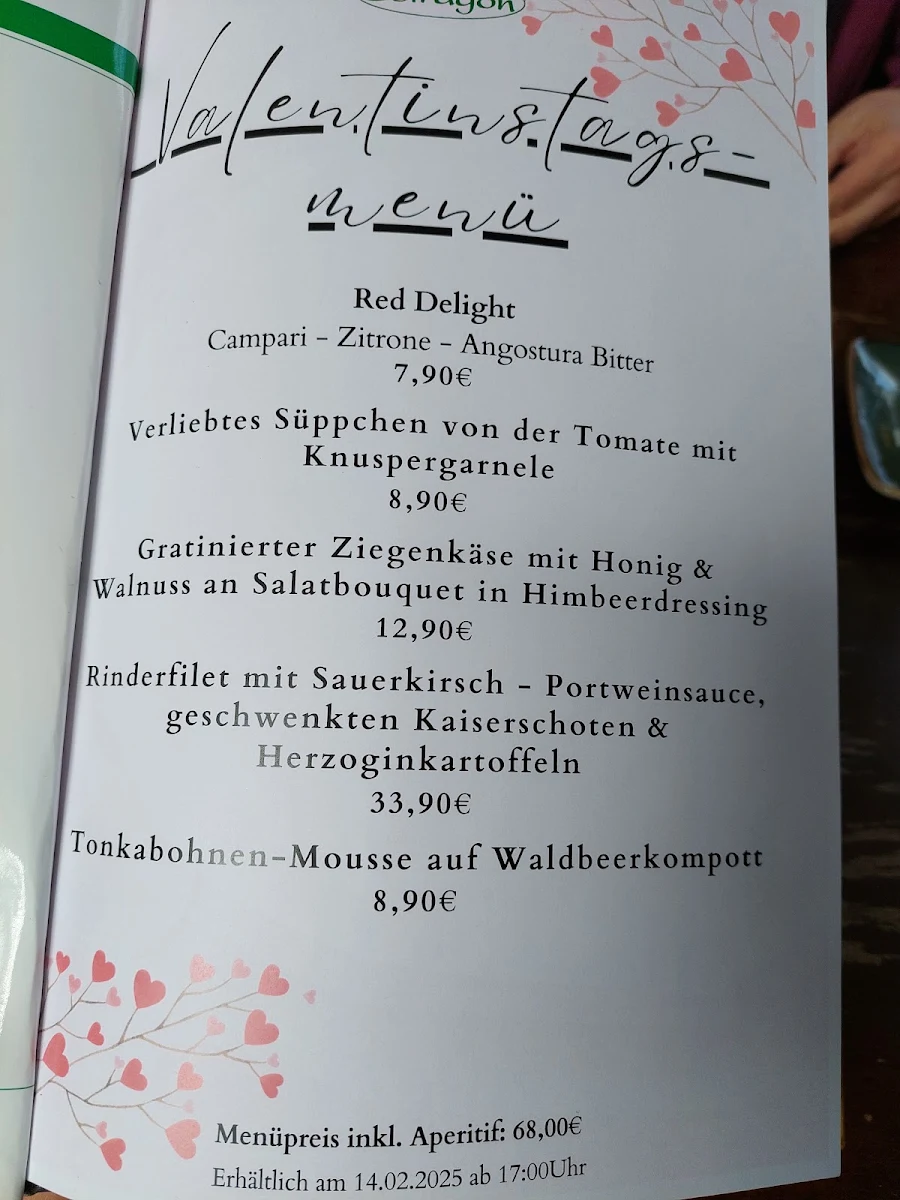 Valentinstags-
menü
Red Delight
Campari - Zitrone - Angostura Bitter
7,90€
Verliebtes Süppchen von der Tomate mit
Knuspergarnele
8,90€
Gratinierter Ziegenkäse mit Honig &
Walnuss an Salatbouquet in Himbeerdressing
12,90€
Rinderfilet mit Sauerkirsch - Portweinsauce,
geschwenkten Kaiserschoten &
Herzoginkartoffeln
33,90€
Tonkabohnen-Mousse auf Waldbeerkompott
8,90€
Menüpreis inkl. Aperitif: 68,00€
Erhältlich am 14.02.2025 ab 17:00Uhr